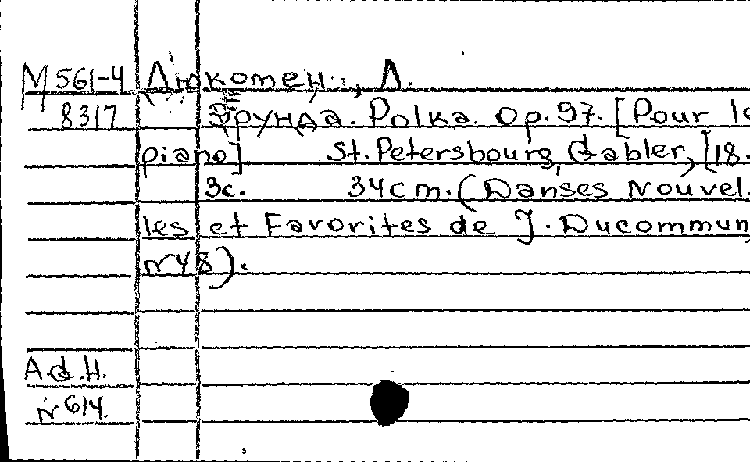 М 561-4 Дюкомен, Л.
8317 Ерунда. Polka. Op. 97. [Pour le
piano] St. Petersbourg, Gabler, [18.
3c. 34cm. (Danses Nouvel-
les et Favorites de J. Ducommun,
№48).
Ad. H.
№614